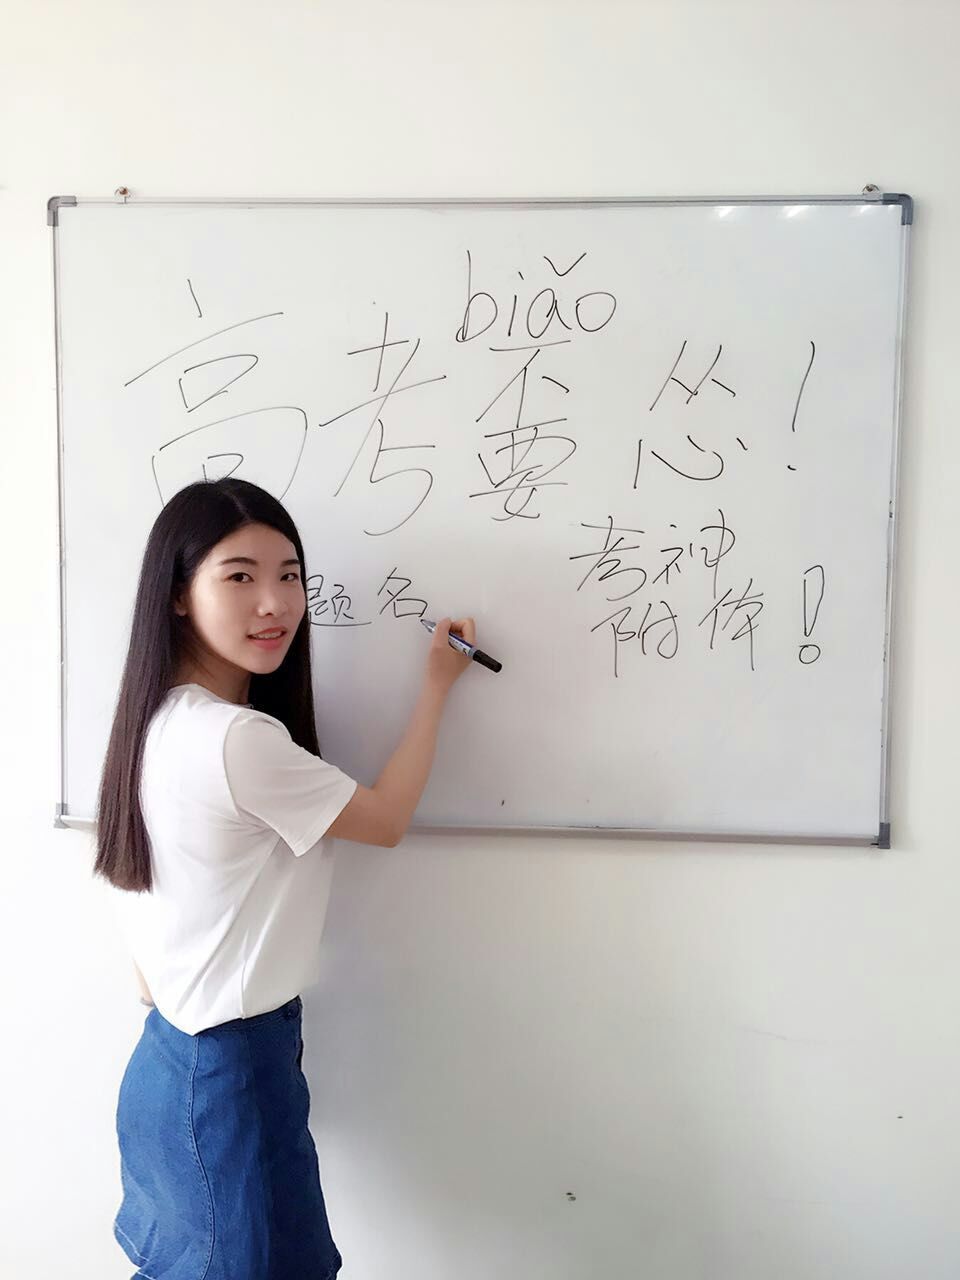 biǎo
高考嫑怂!
考神
附体!
题名